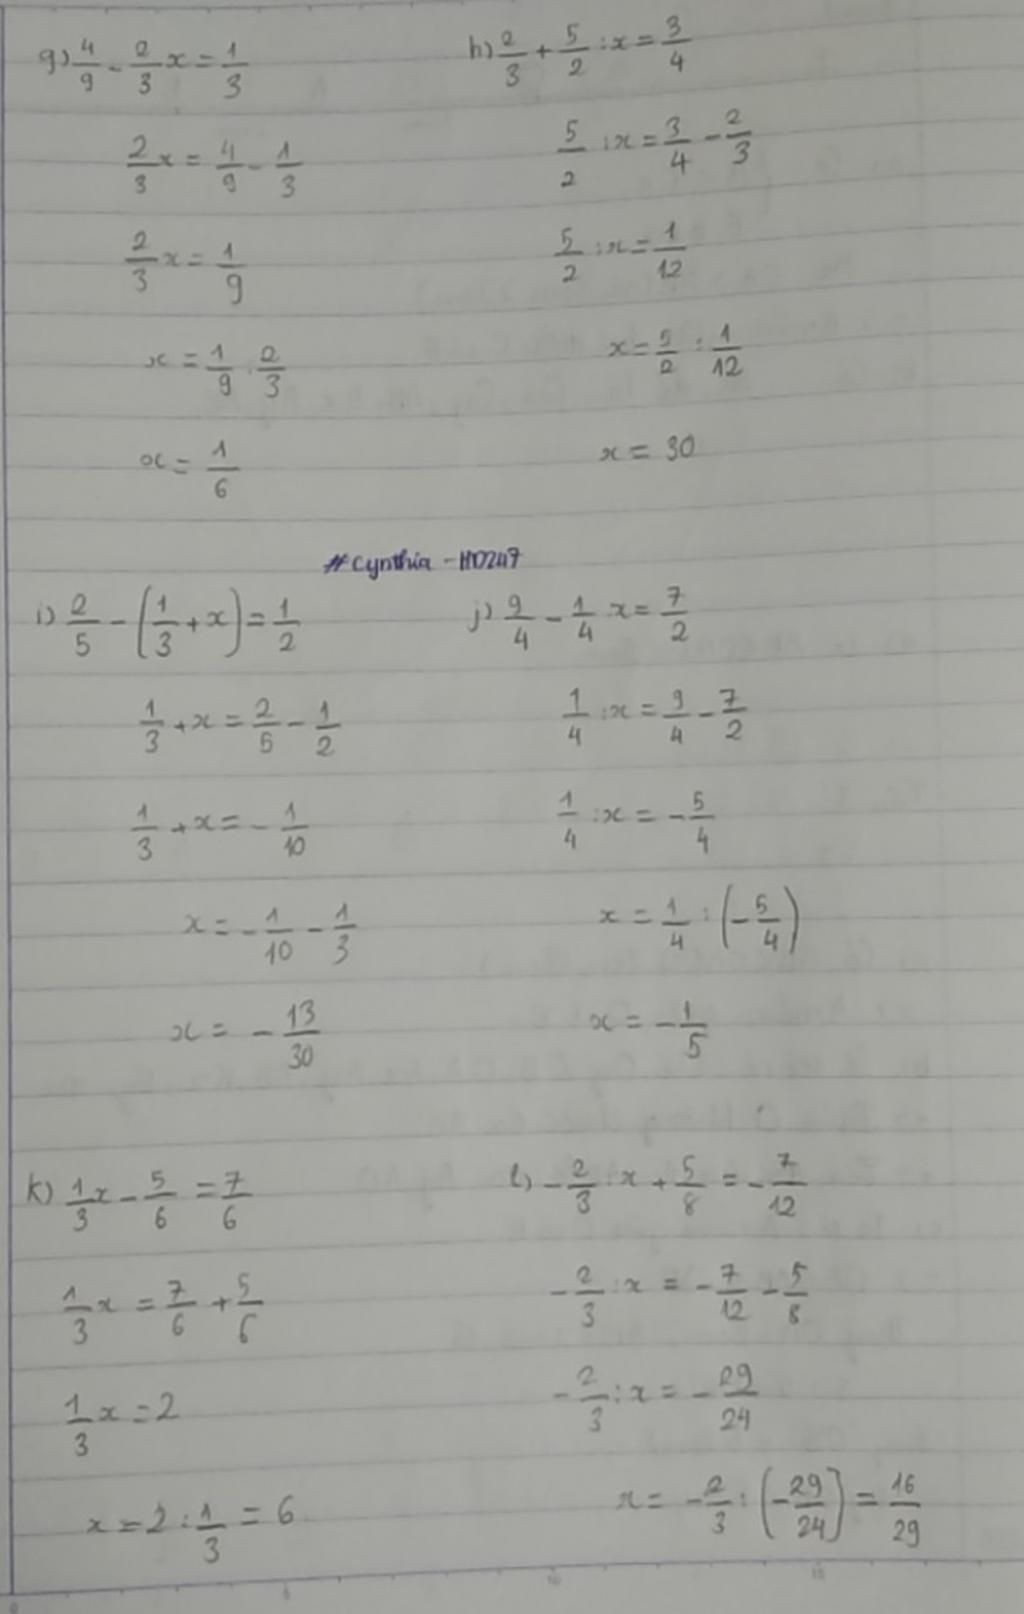 g) 4/9 - 2/3 x = 1/3
2/3 x = 4/9 - 1/3
2/3 x = 1/9
x = 1/9 : 2/3
x = 1/6
h) 2/3 + 5/2 : x = 3/4
5/2 : x = 3/4 - 2/3
5/2 : x = 1/12
x = 5/2 : 1/12
x = 30
#Cynthia - HD247
i) 2/5 - (1/3 + x) = 1/2
1/3 + x = 2/5 - 1/2
1/3 + x = - 1/10
x = - 1/10 - 1/3
x = - 13/30
j) 9/4 - 1/4 x = 7/2
1/4 : x = 9/4 - 7/2
1/4 : x = - 5/4
x = 1/4 : (- 5/4)
x = - 1/5
k) 1/3 x - 5/6 = 7/6
1/3 x = 7/6 + 5/6
1/3 x = 2
x = 2 : 1/3 = 6
l) - 2/3 : x + 5/8 = - 7/12
- 2/3 : x = - 7/12 - 5/8
- 2/3 : x = - 29/24
x = - 2/3 : (- 29/24) = 16/29